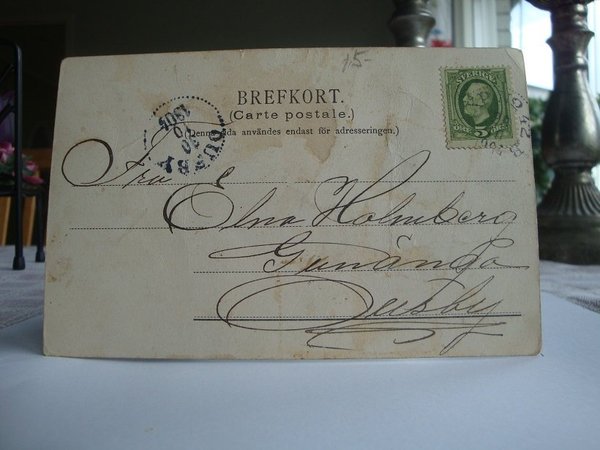 15-
BREFKORT.
(Carte postale.)
(Denna sida användes endast för adresseringen.)
SVERIGE
5
QUSBY
Fru
Elna Holmberg
Gunända
Qusby